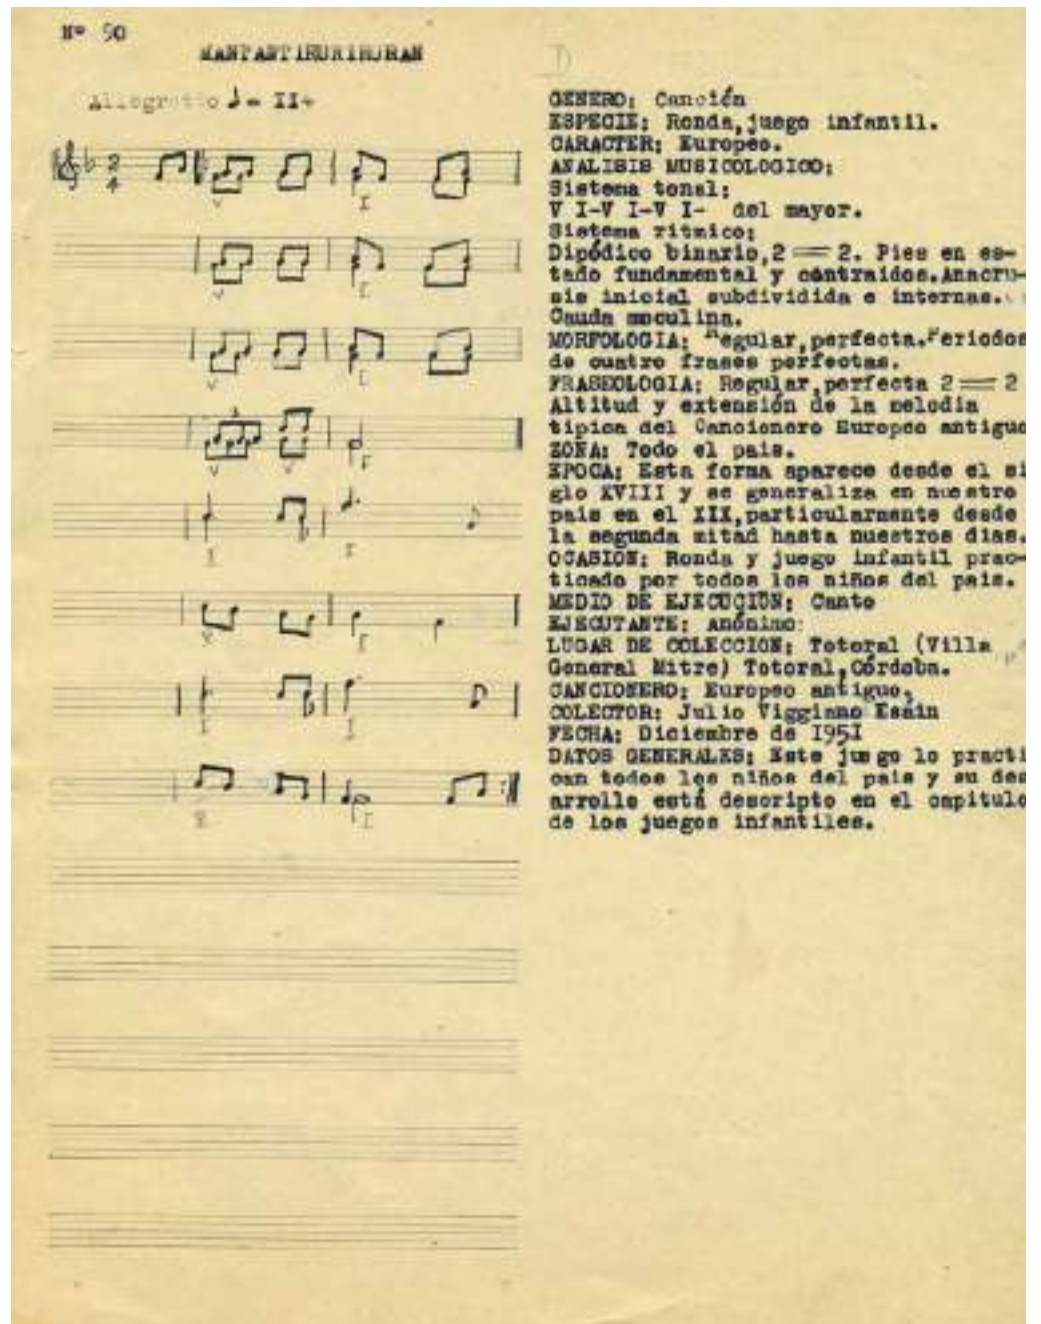 Nº 90
MANTANTIRURIRURAN
Allegretto ♩= II4
D
GENERO: Canción
ESPECIE; Ronda,juego infantil.
CARACTER; Europeo.
ANALISIS MUSICOLOGICO;
Sistema tonal;
V I-V I-V I- del mayor.
Sistema ritmico;
Dipódico binario,2 == 2. Pies en es-
tado fundamental y contraidos.Anacru-
sis inicial subdividida e internas.
Cauda masculina.
MORFOLOGIA; Regular,perfecta.Periodos
de cuatro frases perfectas.
FRASEOLOGIA; Regular,perfecta 2 == 2
Altitud y extensión de la melodia
tipica del Cancionero Europeo antiguo
ZONA; Todo el pais.
EPOCA; Esta forma aparece desde el si
glo XVIII y se generaliza en nuestro
pais en el XIX,particularmente desde
la segunda mitad hasta nuestros dias.
OCASION; Ronda y juego infantil prac-
ticado por todos los niños del pais.
MEDIO DE EJECUCIÓN; Canto
EJECUTANTE; anónimo
LUGAR DE COLECCION; Totoral (Villa
General Mitre) Totoral,Córdoba.
CANCIONERO; Europeo antiguo.
COLECTOR; Julio Viggiano Esain
FECHA; Diciembre de I95I
DATOS GENERALES; Este juego lo practi
can todos los niños del pais y su des
arrollo está descripto en el capitulo
de los juegos infantiles.